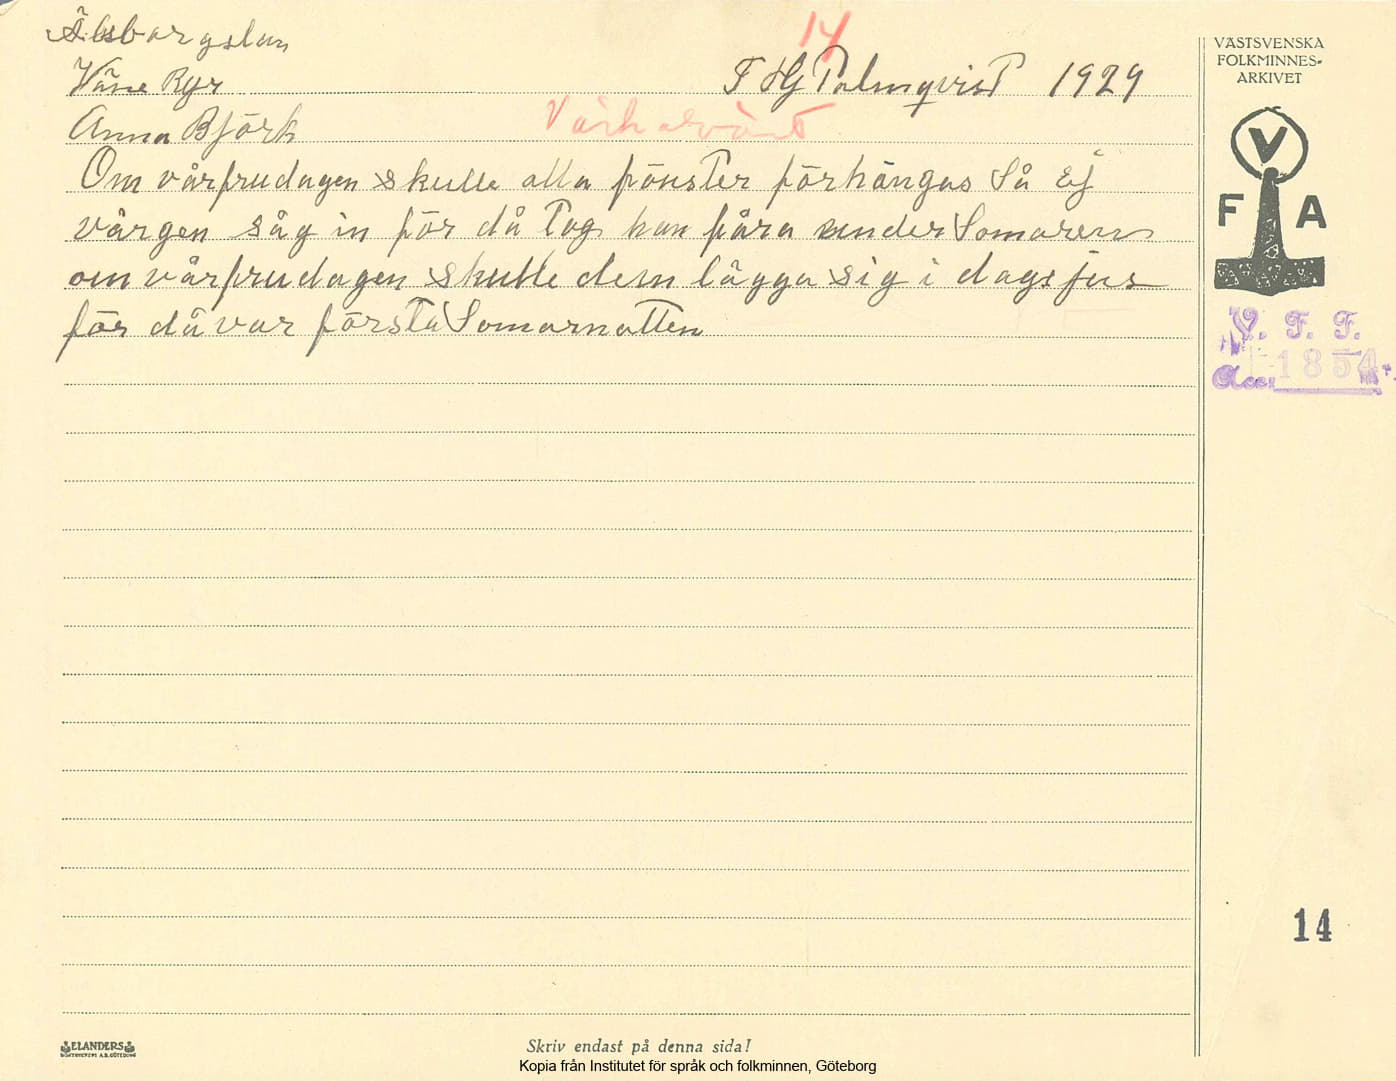 Älsborgslän
14
Väne Ryr
F Hj Palmqvist 1929
Anna Björk
Om vårfrudagen skulle alla fönster förhängas Så Ej
vårgen såg in för då Tog han fåra under Somaren
om vårfrudagen skulle dem lägga sig i dagsjus
för då var första Somarnatten
VÄSTSVENSKA
FOLKMINNES-
ARKIVET
V
F A
V. F. F.
Acc. 1854
14
ELANDERS
BOKTRYCKERI A.B. GÖTEBORG
Skriv endast på denna sida!
Kopia från Institutet för språk och folkminnen, Göteborg